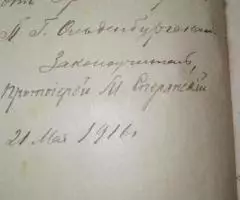 П. Г. Ольденбургскаго.
Законоучитель,
Протоіерей М. Сперанскій
21 Мая 1916 г.